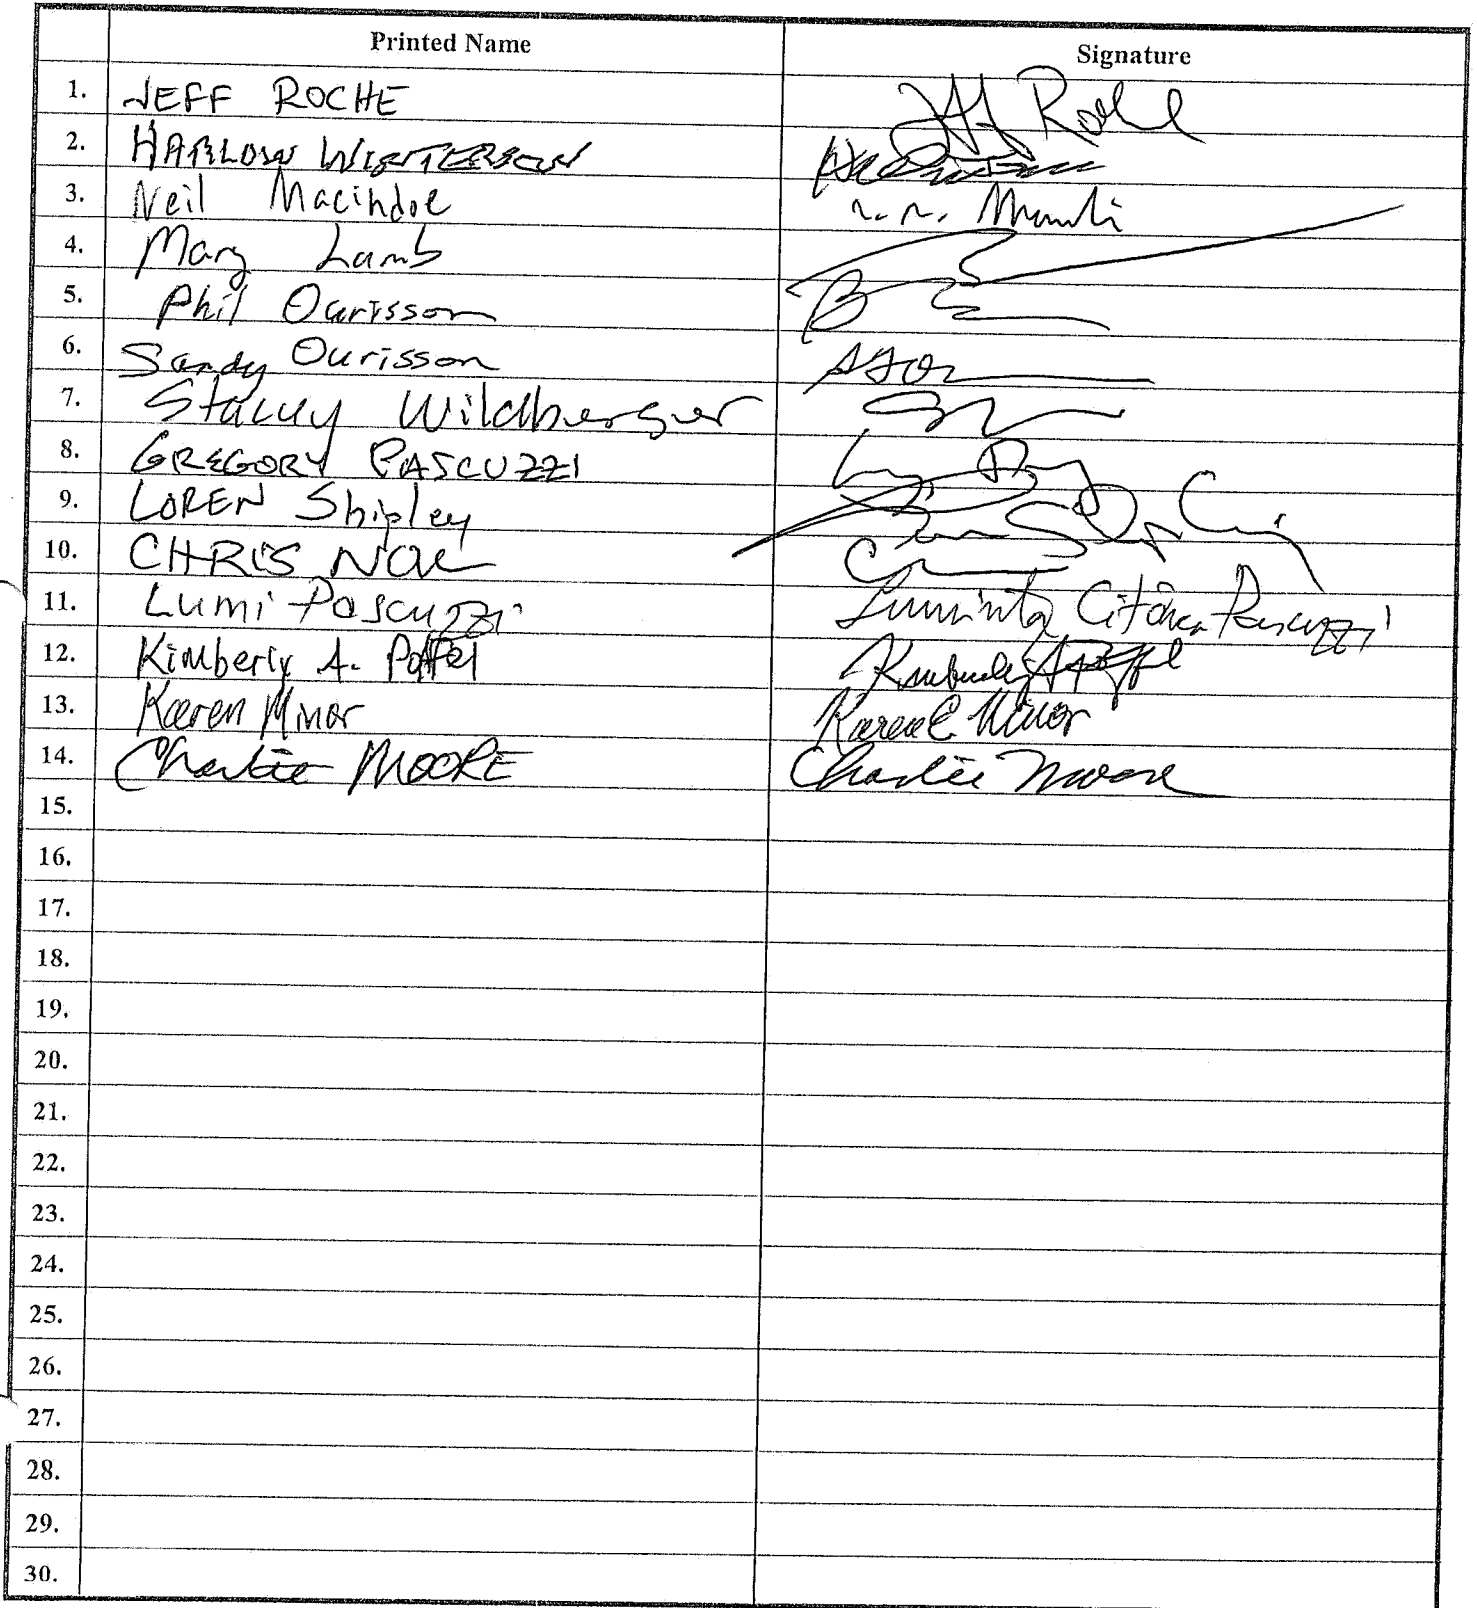 Printed Name Signature
1. JEFF ROCHE Jeff Roche
2. HARLOW
3. Neil Macindoe
4. Mary Lamb
5. Phil Ourisson
6. Sandy Ourisson
7. Stacey Wildberger
8. GREGORY PASCUZZI
9. LOREN Shipley
10. CHRIS
11. Lumi Pascuzzi Luminita Pascuzzi
12. Kimberly A.
13. Karen Minor Karen E Minor
14. Charlie MOORE Charlie Moore
15.
16.
17.
18.
19.
20.
21.
22.
23.
24.
25.
26.
27.
28.
29.
30.